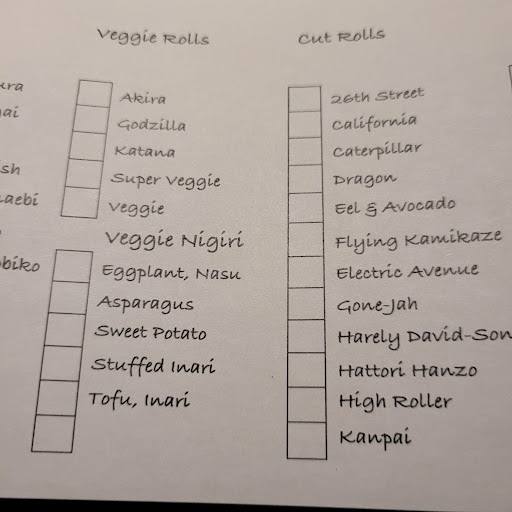 Veggie Rolls
Akira
Godzilla
Katana
Super Veggie
Veggie
Veggie Nigiri
Eggplant, Nasu
Asparagus
Sweet Potato
Stuffed Inari
Tofu, Inari
Cut Rolls
26th Street
California
Caterpillar
Dragon
Eel & Avocado
Flying Kamikaze
Electric Avenue
Gone-Jah
Harely David-Son
Hattori Hanzo
High Roller
Kanpai